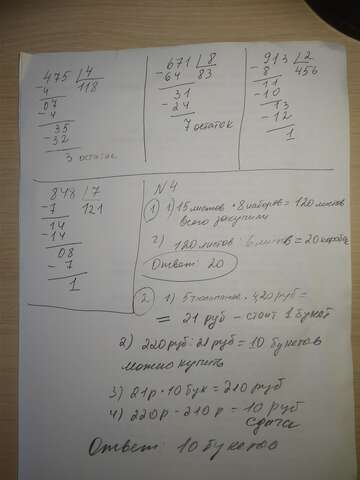 475 | 4
- 4 | 118
07
- 4
35
- 32
3 остаток
671 | 8
- 64 | 83
31
- 24
7 остаток
913 | 2
- 8 | 456
11
- 10
13
- 12
1
848 | 7
- 7 | 121
14
- 14
08
- 7
1
N4
1) 1) 15 листов · 8 наборов = 120 листов
всего закупили
2) 120 листов : 6 листов = 20 коробок
Ответ: 20
2. 1) 5 тюльпанов · 420 руб =
= 21 руб - стоит 1 букет
2) 220 руб : 21 руб = 10 букетов
можно купить
3) 21р · 10 бук = 210 руб
4) 220р - 210р = 10 руб
сдача
Ответ: 10 букетов